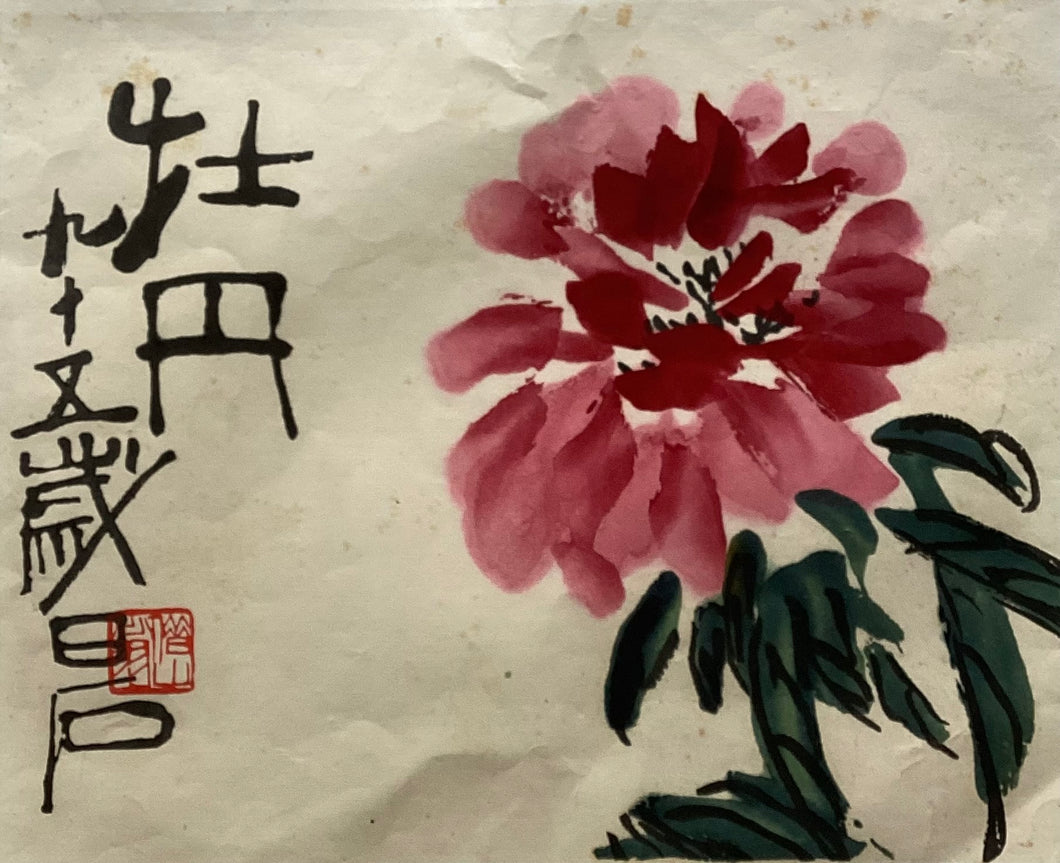 牡丹
九十五歲白石